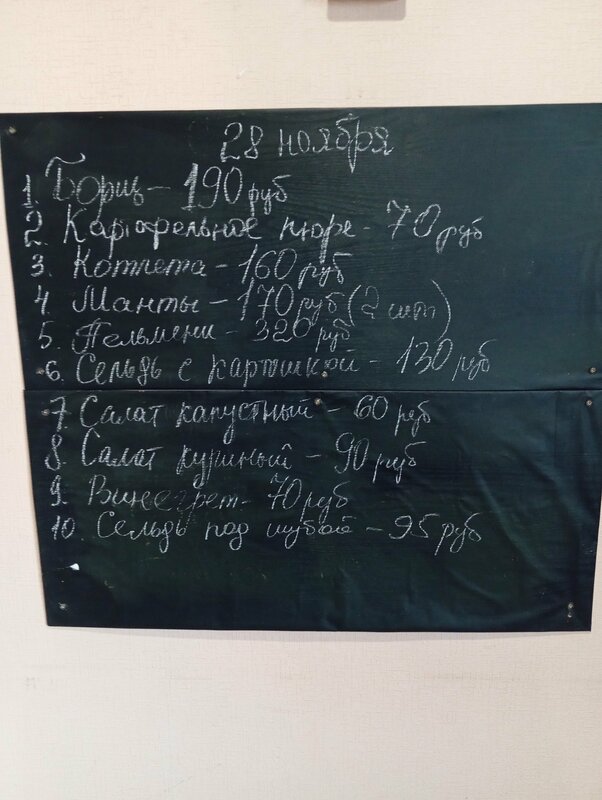 28 ноября
1. Борщ - 190 руб
2. Картофельное пюре - 70 руб
3. Котлета - 160 руб
4. Манты - 170 руб (2 шт)
5. Пельмени - 320 руб
6. Сельдь с картошкой - 130 руб
7. Салат капустный - 60 руб
8. Салат куриный - 90 руб
9. Винегрет - 70 руб
10 Сельдь под шубой - 95 руб